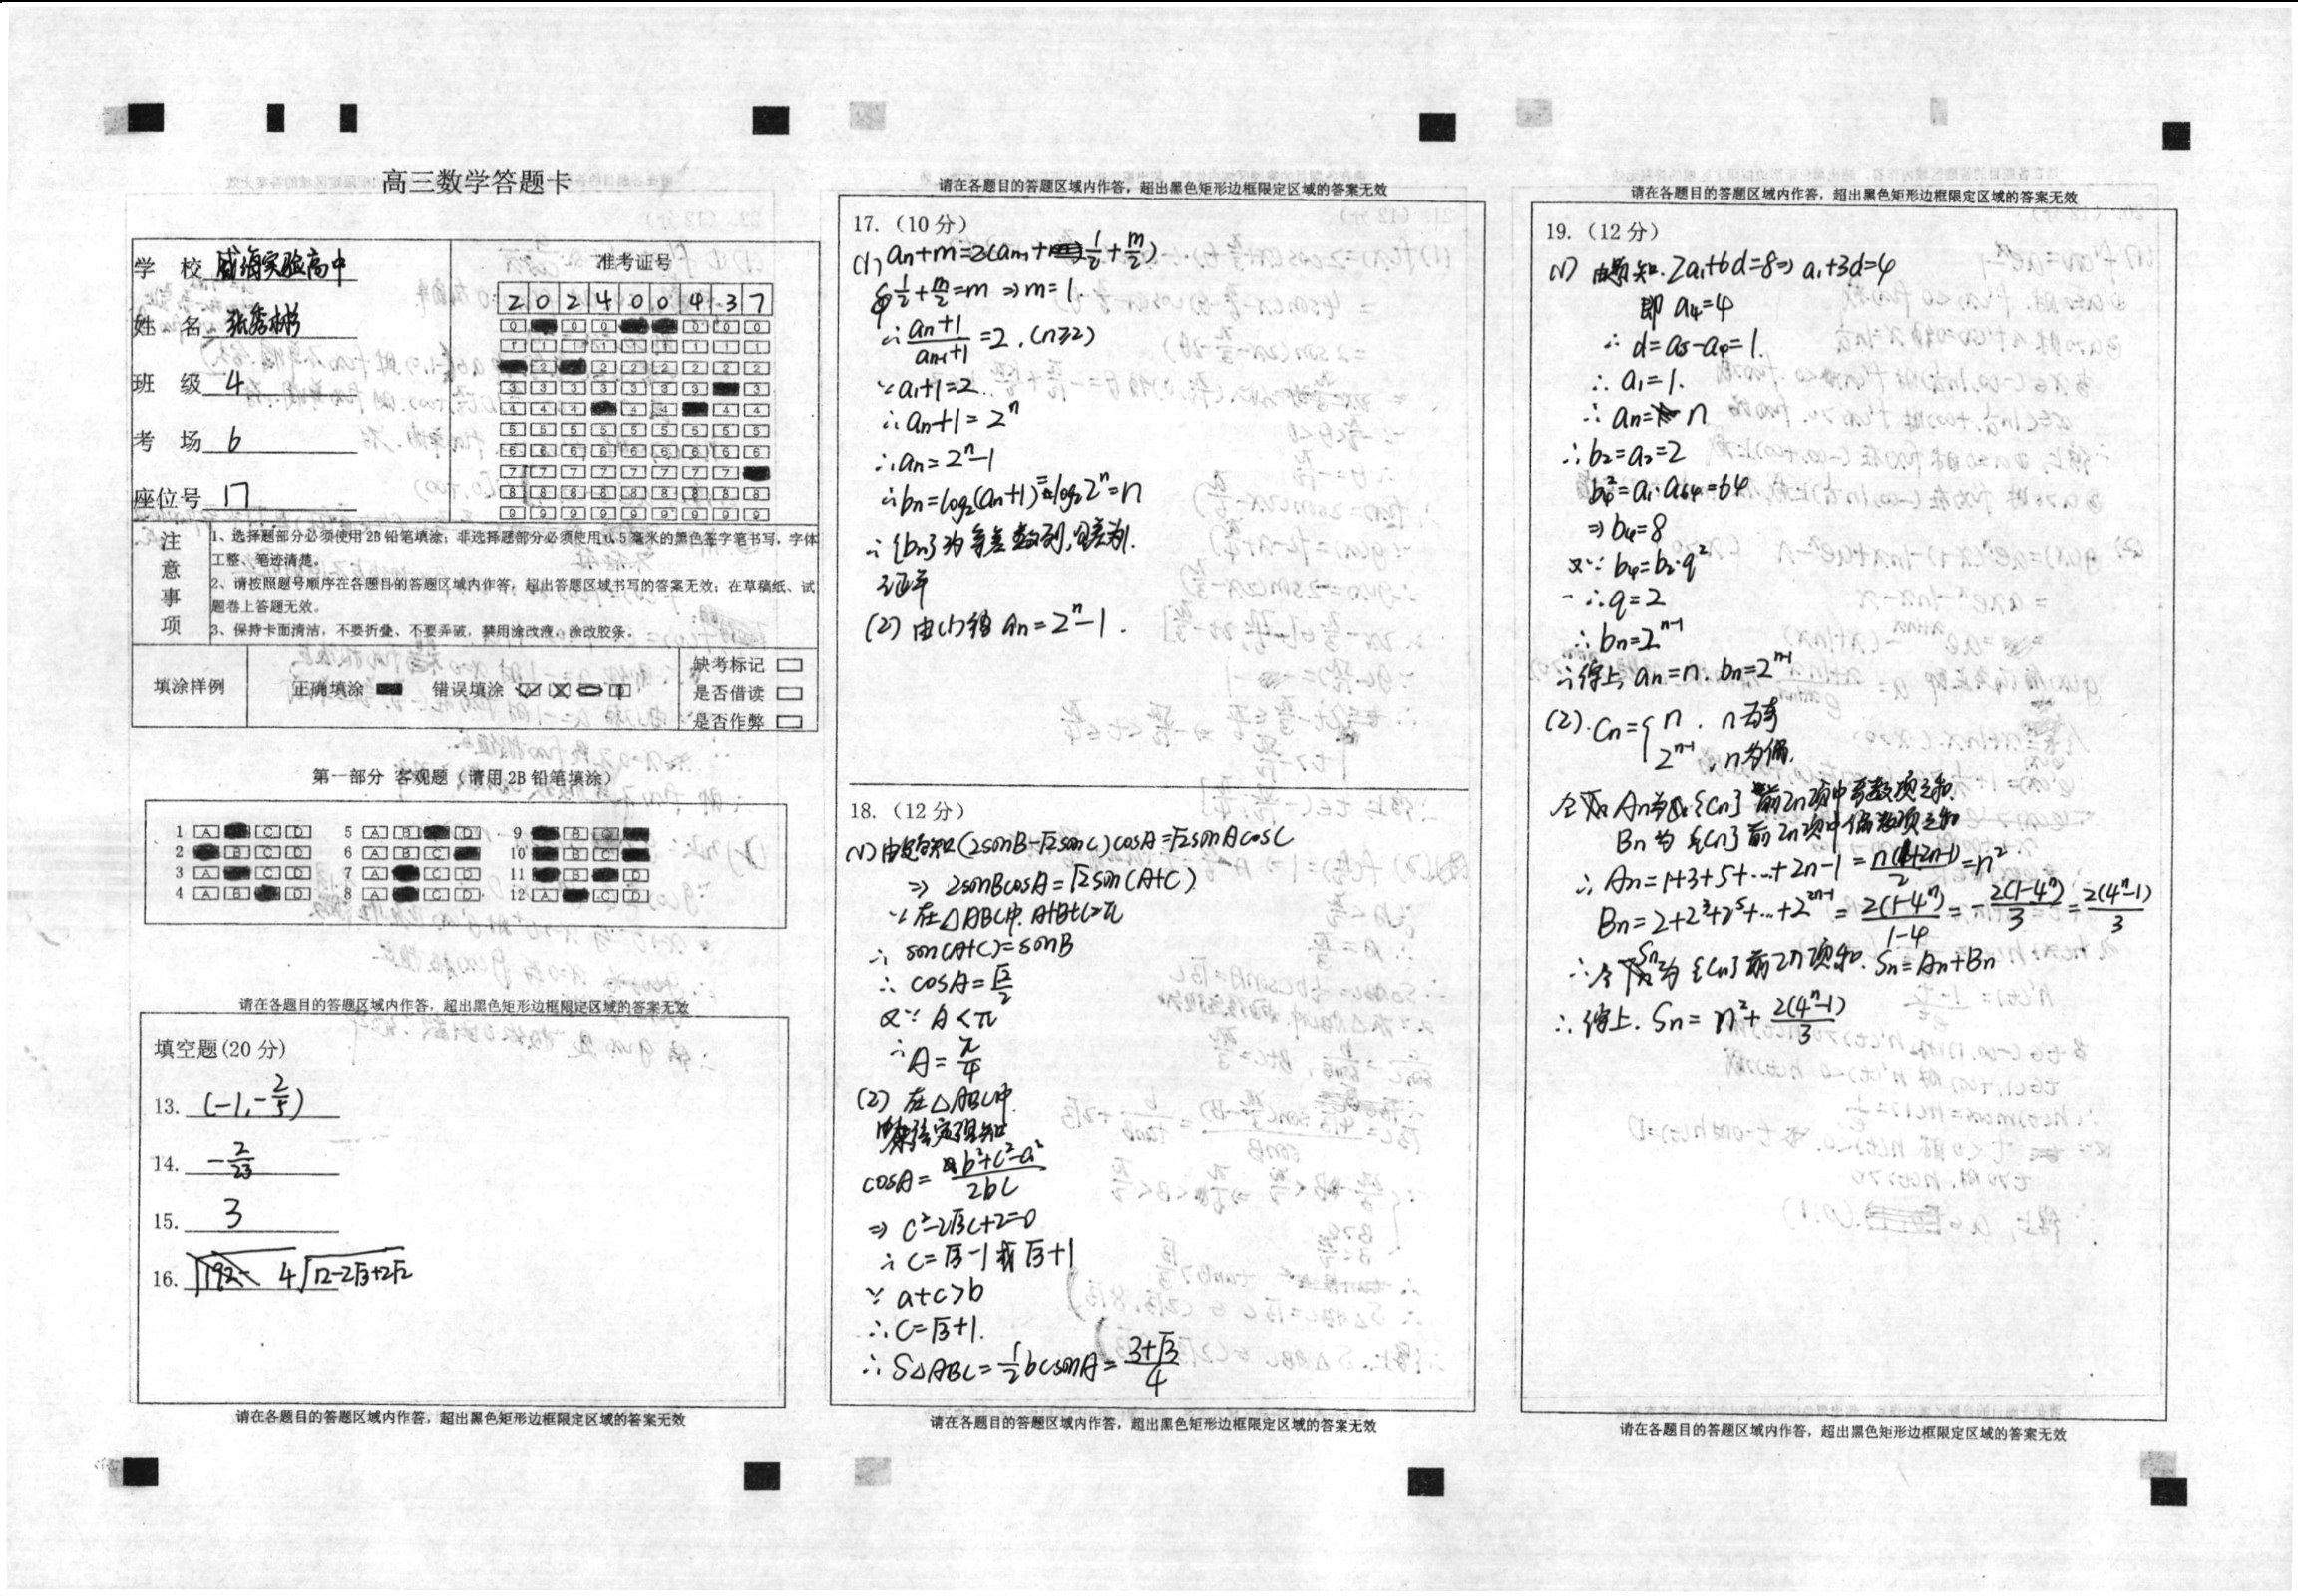 高三数学答题卡
学 校 威海实验高中
姓 名 张秀彬
班 级 4
考 场 6
座位号 17
准考证号
2 0 2 4 0 0 4 3 7
注意事项
1、选择题部分必须使用2B铅笔填涂；非选择题部分必须使用0.5毫米的黑色签字笔书写，字体
工整、笔迹清楚。
2、请按照题号顺序在各题目的答题区域内作答，超出答题区域书写的答案无效；在草稿纸、试
题卷上答题无效。
3、保持卡面清洁，不要折叠、不要弄破，禁用涂改液，涂改胶条。
填涂样例 正确填涂 错误填涂
缺考标记
是否借读
是否作弊
第一部分 客观题（请用2B铅笔填涂）
请在各题目的答题区域内作答，超出黑色矩形边框限定区域的答案无效
填空题(20分)
13. (-1,-2/5)
14. -2/23
15. 3
16. 4√(12-2√3+2√2)
请在各题目的答题区域内作答，超出黑色矩形边框限定区域的答案无效
请在各题目的答题区域内作答，超出黑色矩形边框限定区域的答案无效
17.（10分）
(1) an+m=2(an-1+1/2+m/2)
令1/2+m/2=m ⇒m=1.
∴(an+1)/(an-1+1)=2.(n≥2)
∵a1+1=2.
∴an+1=2^n
∴an=2^n-1
∴bn=log2(an+1)=log2 2^n=n
∴{bn}为等差数列,公差为1.
证毕
(2) 由(1)得 an=2^n-1.
18.（12分）
(1)由题知(2sinB-√2sinC)cosA=√2sinAcosC
⇒ 2sinBcosA=√2sin(A+C)
∵在△ABC中. A+B+C=π
∴ sin(A+C)=sinB
∴ cosA=√2/2
又∵ A<π
∴A=π/4
(2) 在△ABC中.
由余弦定理知
cosA=(b²+c²-a²)/2bc
⇒ c²-2√3c+2=0
∴c=√3-1或√3+1
∵ a+c>b
∴c=√3+1.
∴S△ABC=1/2bcsinA=(3+√3)/4
请在各题目的答题区域内作答，超出黑色矩形边框限定区域的答案无效
请在各题目的答题区域内作答，超出黑色矩形边框限定区域的答案无效
19.（12分）
(1) 由题知.2a1+6d=8⇒a1+3d=4
即 a4=4
∴ d=a5-a4=1.
∴ a1=1.
∴ an=n
∴b2=a2=2
b4²=a1·a64=64
⇒b4=8
又∵b4=b2·q²
∴q=2
∴bn=2^(n-1)
∴综上,an=n. bn=2^(n-1)
(2).Cn={n , n为奇
2^(n-1) , n为偶.
令An为{Cn}前2n项中奇数项之和.
Bn为{Cn}前2n项中偶数项之和
∴An=1+3+5+…+2n-1=n(1+2n-1)/2=n²
Bn=2+2³+2⁵+…+2^(2n-1)=2(1-4^n)/(1-4)=-2(1-4^n)/3=2(4^n-1)/3
∴令Sn为{Cn}前2n项和. Sn=An+Bn
∴综上. Sn=n²+2(4^n-1)/3
请在各题目的答题区域内作答，超出黑色矩形边框限定区域的答案无效